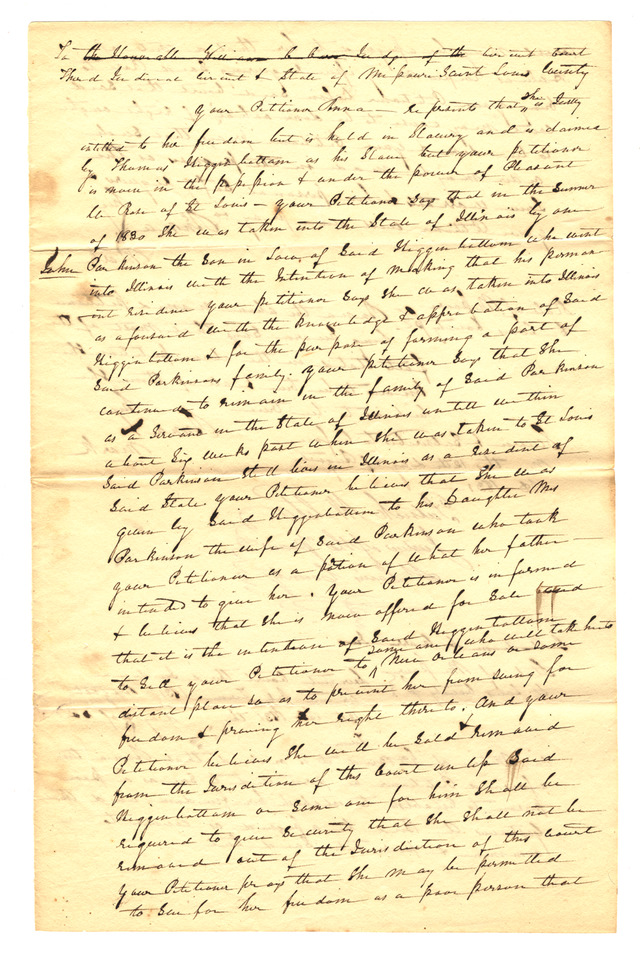 To the Honorable William C Carr Judge of the circuit court
Third Judicial circuit & State of Missouri Saint Louis County
Your Petitioner Anna — represents that She is Justly
intitled to her freedom but is held in Slavery and is claimed
by Thomas Higginbottom as his Slave but your petitioner
is now in the possession & under the power of Pleasant
M Rose of St Louis — your Petitioner Says that in the Summer
of 1830 She was taken into the State of Illinois by one
John Parkinson the Son in Law of Said Higginbottom who went
into Illinois with the Intention of making that his perman
ent residence your petitioner Says She was taken into Illinois
as aforesaid with the knowledge & approbation of Said
Higginbottom & for the purpose of forming a part of
Said Parkinsons family. your petitioner Says that She
continued to remain in the family of Said Parkinson
as a Servant in the State of Illinois untill within
about Six weeks past when She was taken to St Louis
Said Parkinson Still lives in Illinois as a resident of
Said State your Petitioner believes that She was
given by Said Higginbottom to his Daughter Mrs
Parkinson the wife of Said Parkinson who took
your Petitioner as a potion of what her father
intended to give her. Your Petitioner is informed
& believes that She is now offered for Sale and
that it is the intention of Said Higginbottom
to Sell your Petitioner to some one who will take her to New Orleans or Some
distant place so as to prevent her from suing for
freedom & proving her right thereto. And your
Petitioner believes She will be Sold & removed
from the Jurisdiction of this Court unless Said
Higginbottom or Some one for him Shall be
required to give Security that She Shall not be
removed out of the Jurisdiction of this Court
Your Petitioner prays that She may be permitted
to Sue for her freedom as a poor person that